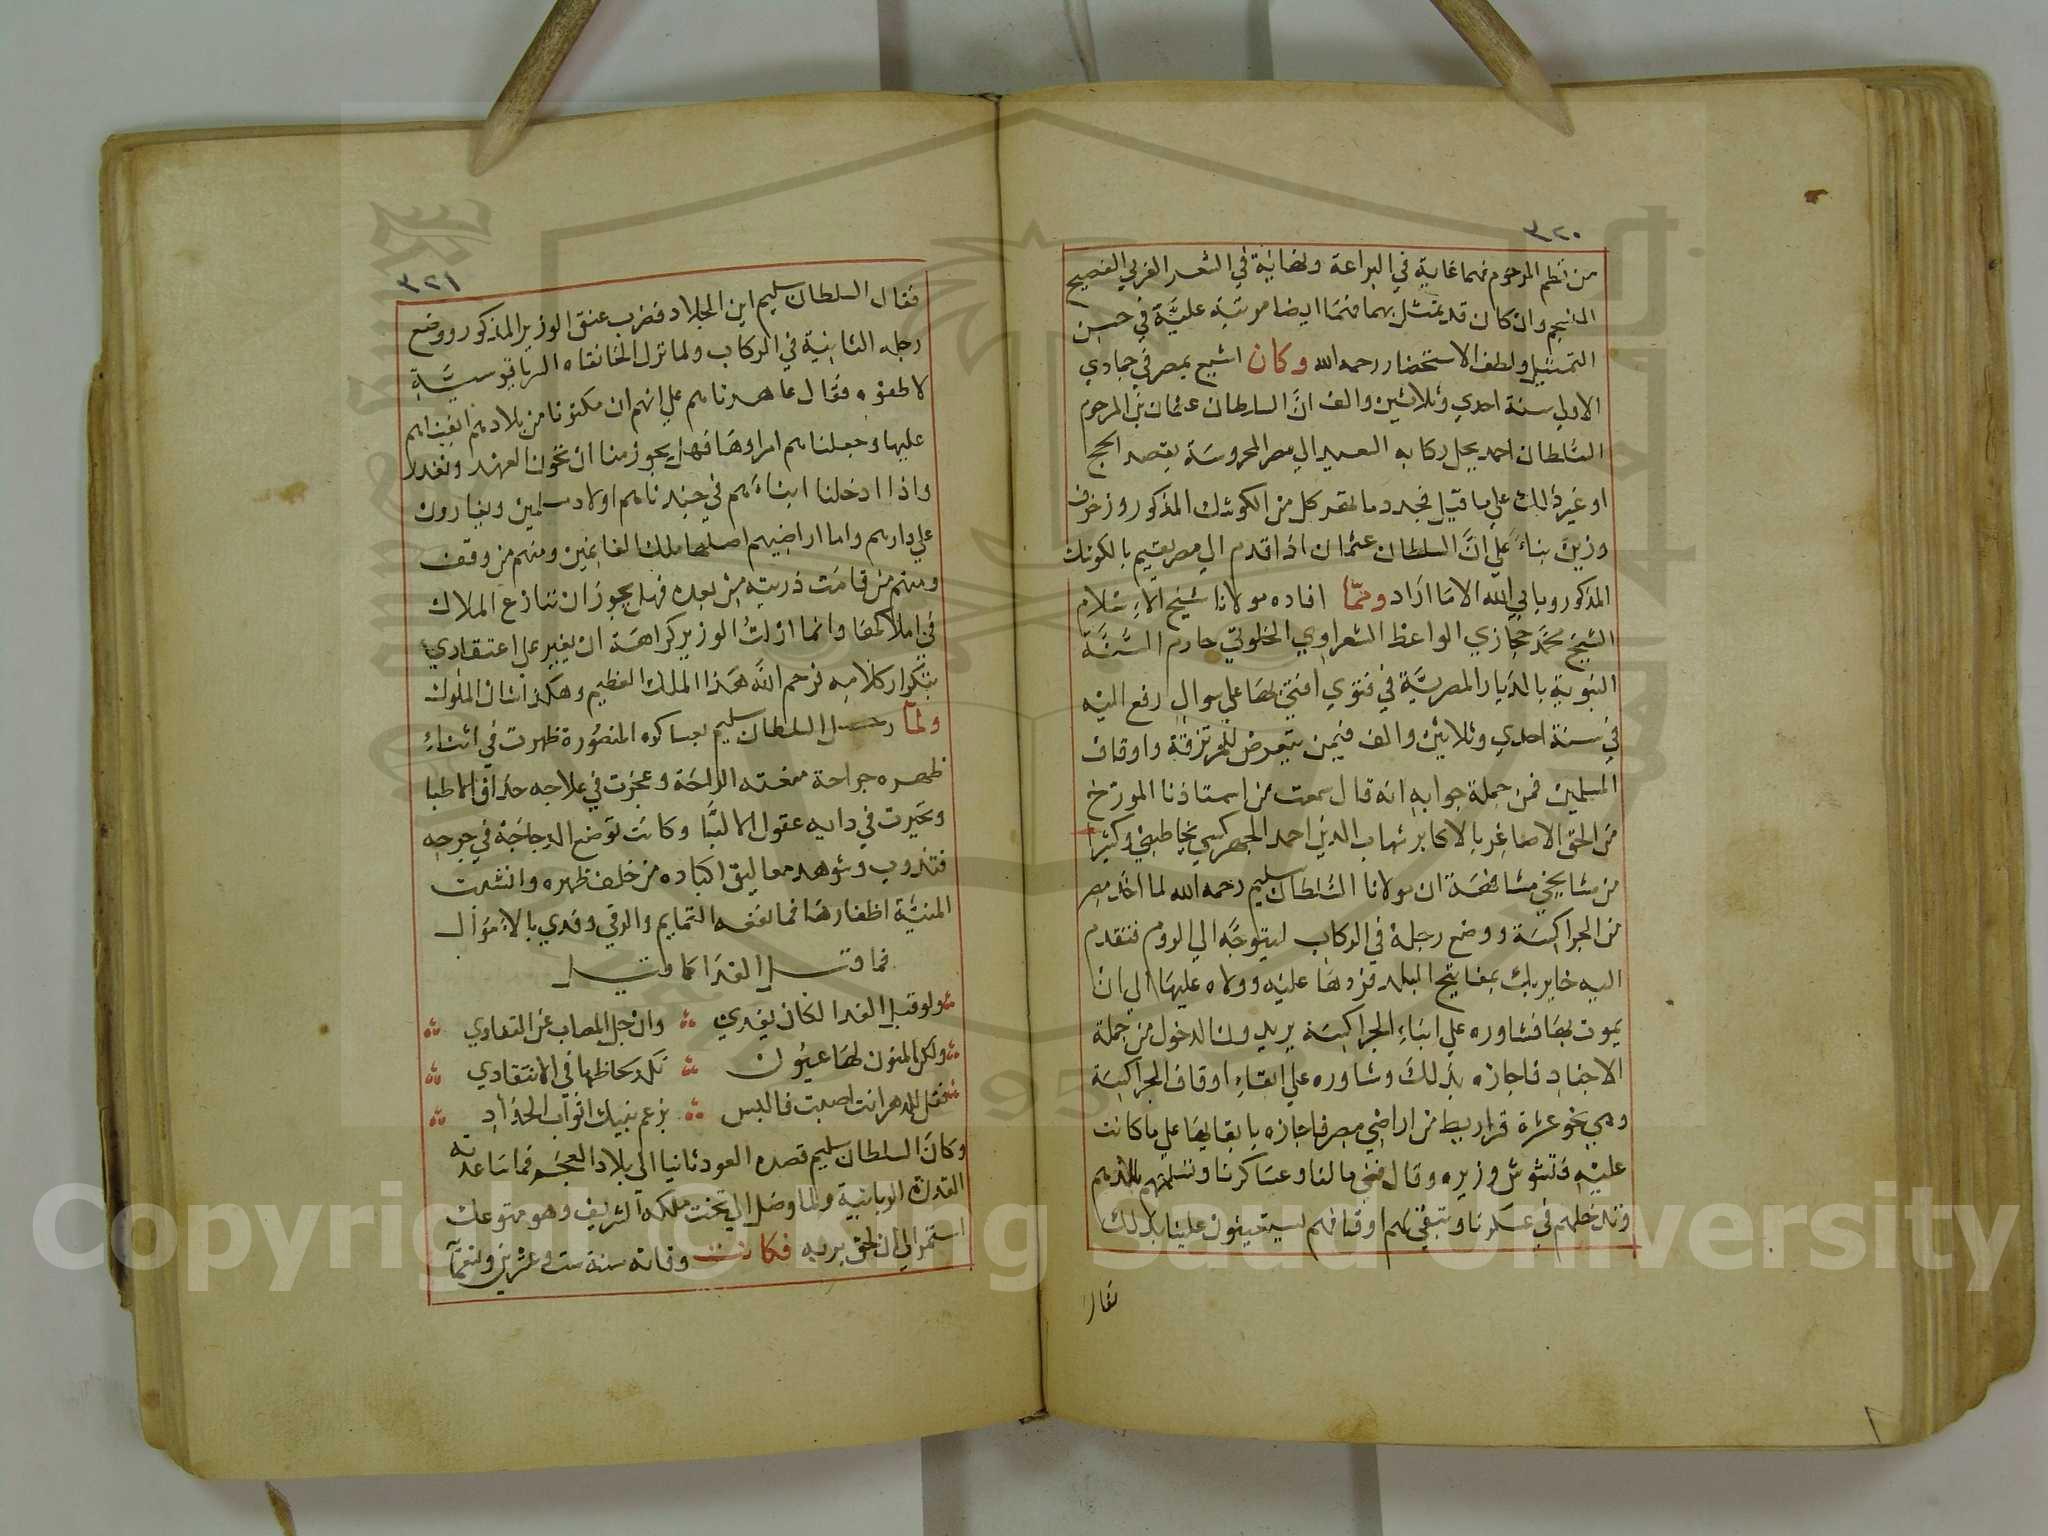 ٣٢٠
من نظم المرحوم فهما غاية في البراعة ونهاية في الشعر العربي الفصيح
المنجم وان كان قد يمتثل بهما فهما ايضا مرتبة علية في حسن
التمثيل ولطف الاستحضار رحمه الله وكان اشيع بمصر في جمادي
الاولي سنة احدي وثلاثين والف ان السلطان عثمان بن المرحوم
السلطان احمد يحل ركابه السعيد الي مصر المحروسة بقصد الحج
او غير ذلك علي ما قيل فجدد ما لمقر كل من الكوشك المذكور وزخرف
وزين بناء علي ان السلطان عثمان اذا قدم الي مصر يقيم بالكوشك
المذكور ويابي الله الا ما اراد ومما افاده مولانا شيخ الاسلام
الشيخ محمد حجازي الواعظ الشعراوي الخلوتي خادم السنة
النبوية بالديار المصرية في فتوي افتي بها علي سوال رفع اليه
في سنة احدي وثلاثين والف فيمن يتعرض للمرتزقة واوقاف
المسلمين فمن جملة جوابه انه قال سمعت من استاذنا المورخ
من الحق الاصاغر بالاكابر شهاب الدين احمد الجهركسي يخاطبني وكثيرا
من مشايخي مشافهة ان مولانا السلطان سليم رحمه الله لما اخذ مصر
من الجراكسة ووضع رجله في الركاب ليتوجه الي الروم فتقدم
اليه خاير بك بمفاتيح البلد فردها عليه وولاه عليها الي ان
يموت بها فشاوره علي ابناء الجراكسة يريدون الدخول من جملة
الاجناد فاجازه بذلك وشاوره علي ابقاء اوقاف الجراكسة
وهي نحو عشرة قراريط من اراضي مصر فاجازه بابقايها علي ما كانت
عليه فتشوش وزيره وقال فني مالنا وعساكرنا وتسلمهم بلادهم
وتدخلهم في عسكرنا وتبقي لهم اوقافهم ليستعينون علينا بذلك
فقال
٣٢١
فقال السلطان سليم اين الجلاد فضرب عنق الوزير المذكور ووضع
رجله الثانية في الركاب ولما نزل الخانقاه السرياقوسية
لاطفوه فقال عاهدناهم علي انهم ان مكنونا من بلادهم ابقيناهم
عليها وجعلناهم امراوها فهل يجوز منا ان نخون العهد ونغدر
واذا ادخلنا ابناءهم في جندنا فهم اولاد مسلمين ويغارون
علي دارهم واما اراضيهم اصلها ملك الغانمين ومنهم من وقف
ومنهم من قامت ذريته من بعده فهل يجوز ان ننازع الملاك
في املاكها وانما ازلت الوزير كراهة ان يغير علي اعتقادي
بتكرار كلامه فرحم الله هذا الملك العظيم وهكذا شان الملوك
ولما رحل السلطان سليم بعساكره المنصورة ظهرت في اثناء
ظهره جراحة منعته الراحة وعجزت في علاجه حذاق الاطبا
وتحيرت في دايه عقول الالبا وكانت توضع الدجاجة في جرحه
فتذوب وشوهد معاليق اكباده من خلف ظهره وانشبت
المنية اظفارها فما نفعه التمايم والرقي وفدي بالاموال
فما قبل الفدا كما قيل
ولو قبل الفدا لكان يفدي وان جل المصاب عن التفادي
ولكن المنون لها عيون تكد لحاظها في الانتقادي
فقل للدهر انت اصبت فالبس بزعم بنيك اثواب الحداد
وكان السلطان سليم قصده العود ثانيا الي بلاد العجم فما ساعدته
القدرة الربانية ولما وصل الي تخت ملكه الشريف وهو متوعك
استمر الي ان لحق بربه فكانت وفاته سنة ست وعشرين وتسعماية
Copyright © King Saud University